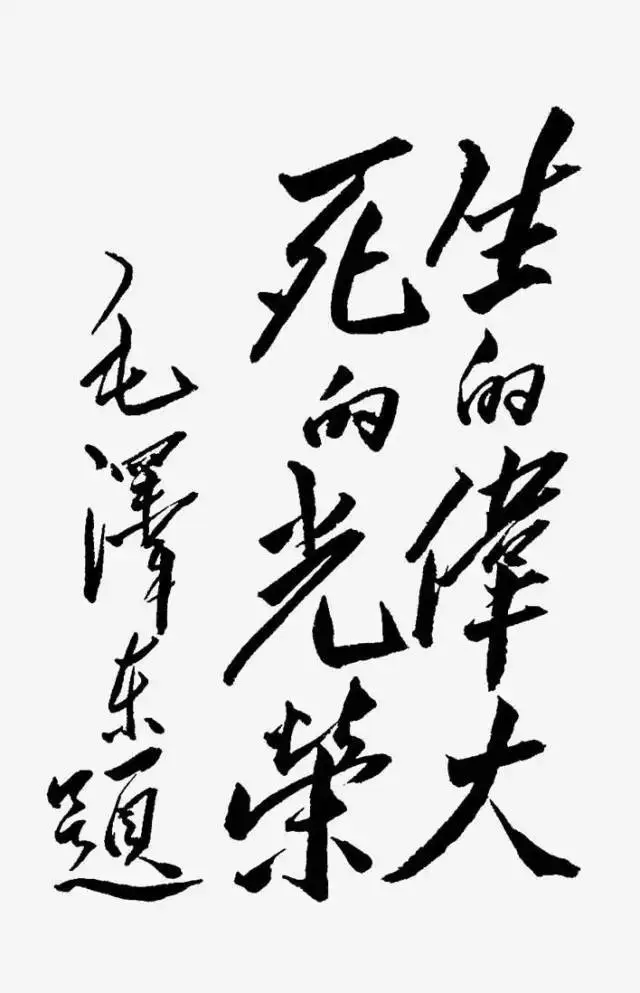 生的偉大
死的光荣
毛澤东題